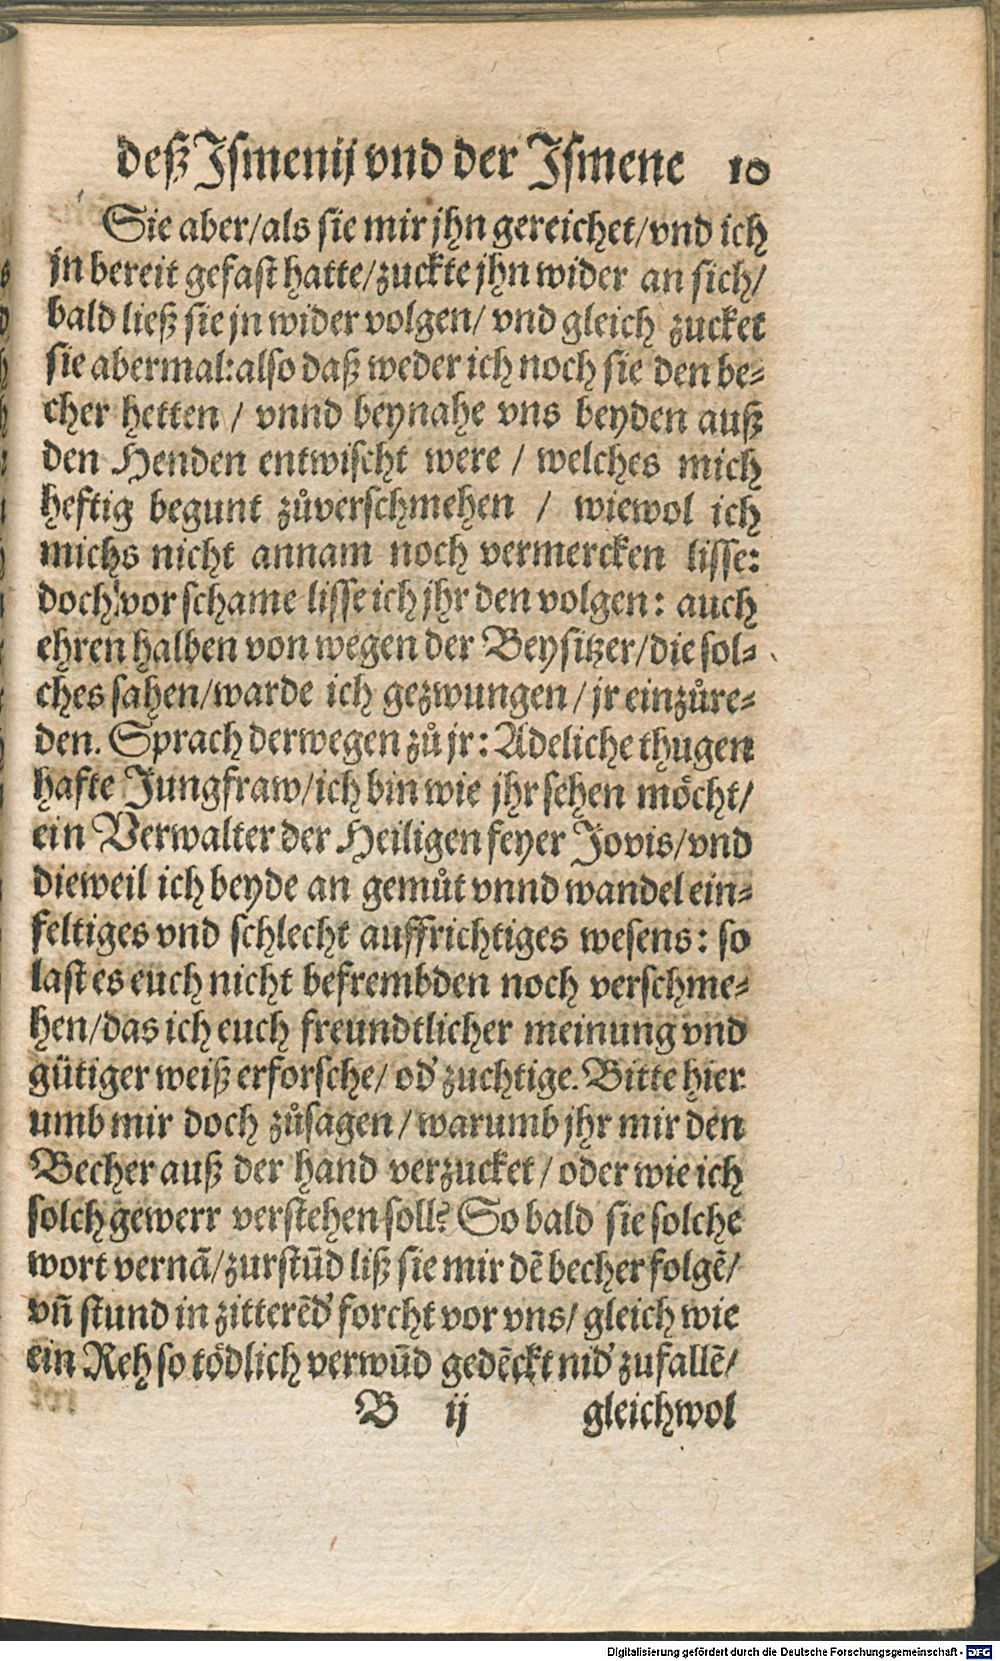 deß Ismenij vnd der Ismene 10
Sie aber/als sie mir jhn gereichet/vnd ich
jn bereit gefast hatte/zuckte jhn wider an sich/
bald ließ sie jn wider volgen/ vnd gleich zucket
sie abermal:also daß weder ich noch sie den be-
cher hetten / vnnd beynahe vns beyden auß
den Henden entwischt were / welches mich
heftig begunt zůverschmehen / wiewol ich
michs nicht annam noch vermercken lisse:
doch vor schame lisse ich jhr den volgen: auch
ehren halben von wegen der Beysitzer/die sol-
ches sahen/warde ich gezwungen/jr einzůre-
den. Sprach derwegen zů jr: Adeliche thugen
hafte Jungfraw/ich bin wie jhr sehen möcht/
ein Verwalter der Heiligen feyer Jovis/vnd
dieweil ich beyde an gemůt vnnd wandel ein-
feltiges vnd schlecht auffrichtiges wesens: so
last es euch nicht befrembden noch verschme-
hen/das ich euch freundtlicher meinung vnd
gütiger weiß erforsche/ od' zuchtige. Bitte hier
umb mir doch zůsagen/warumb jhr mir den
Becher auß der hand verzucket/oder wie ich
solch gewerr verstehen soll? So bald sie solche
wort vernã/zurstũd liß sie mir dẽ becher folgẽ/
vñ stund in zitterẽd' forcht vor vns/ gleich wie
ein Reh so tödlich verwũd gedẽckt nid' zufallẽ/
B ij gleichwol
Digitalisierung gefördert durch die Deutsche Forschungsgemeinschaft - DFG